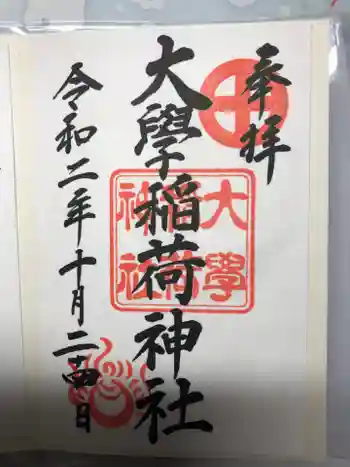 奉拝
大學稲荷神社
大學
稲荷
神社
令和二年十月二十四日